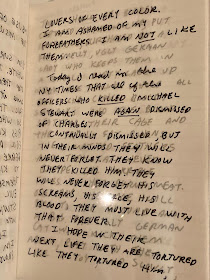 LOVERS OF EVERY COLOR.
I AM ASHAMED OF MY
FOREFATHERS. I AM NOT LIKE
THEM.
Today I read in the
NY TIMES THAT all of the
OFFICERS WHO KILLED MICHAEL
STEWART WERE AGAIN DISMISSED
OF CHARGES.
CONTINUALLY DISMISSED, BUT
IN THEIR MINDS THEY WILL
NEVER FORGET. THEY KNOW
THEY KILLED HIM. THEY
WILL NEVER FORGET HIS
SCREAMS, HIS FACE, HIS
BLOOD. THEY MUST LIVE WITH
THAT FOREVER.
I HOPE IN THEIR
NEXT LIFE THEY ARE TORTURED
LIKE THEY TORTURED HIM.